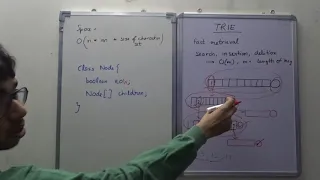 Space =
O(n * m * size of character set)
Class Node {
boolean
Node[] children;
}
TRIE
Fast retrieval
Search, insertion, deletion
O(m), m = length of key